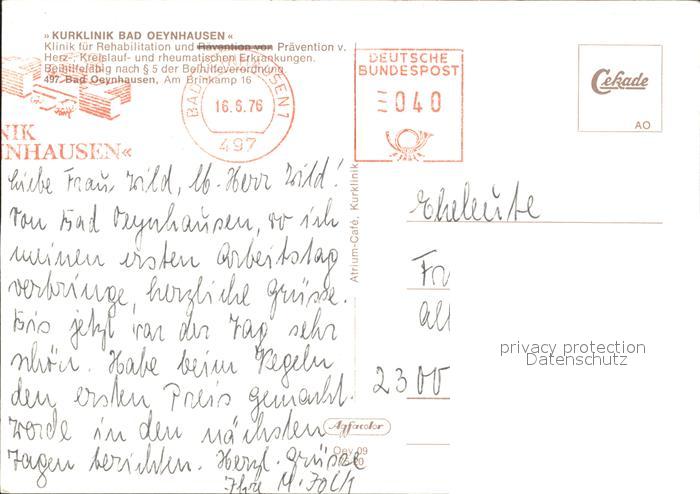 » KURKLINIK BAD OEYNHAUSEN «
Klinik für Rehabilitation und Rävention von Prävention v.
Herz-, Kreislauf- und rheumatischen Erkrankungen.
Beihilfefähig nach § 5 der Beihilfeverordnung
497 Bad Oeynhausen, Am Brinkamp 16
NIK
NHAUSEN«
16.6.76
497
DEUTSCHE
BUNDESPOST
040
Cekade
AO
Liebe Frau Wild, lb. Herr Wild!
Von Bad Oeynhausen, wo ich
meinen ersten Arbeitstag
verbringe, herzliche Grüsse.
Bis jetzt war der Tag sehr
schön. Habe beim Kegeln
den ersten Preis gemacht.
Werde in den nächsten
Tagen berichten. Herzl. Grüsse
Ihre M.
Atrium-Café, Kurklinik
Agfacolor
Oey 09
Eheleute
Fr
All
2300
privacy protection
Datenschutz